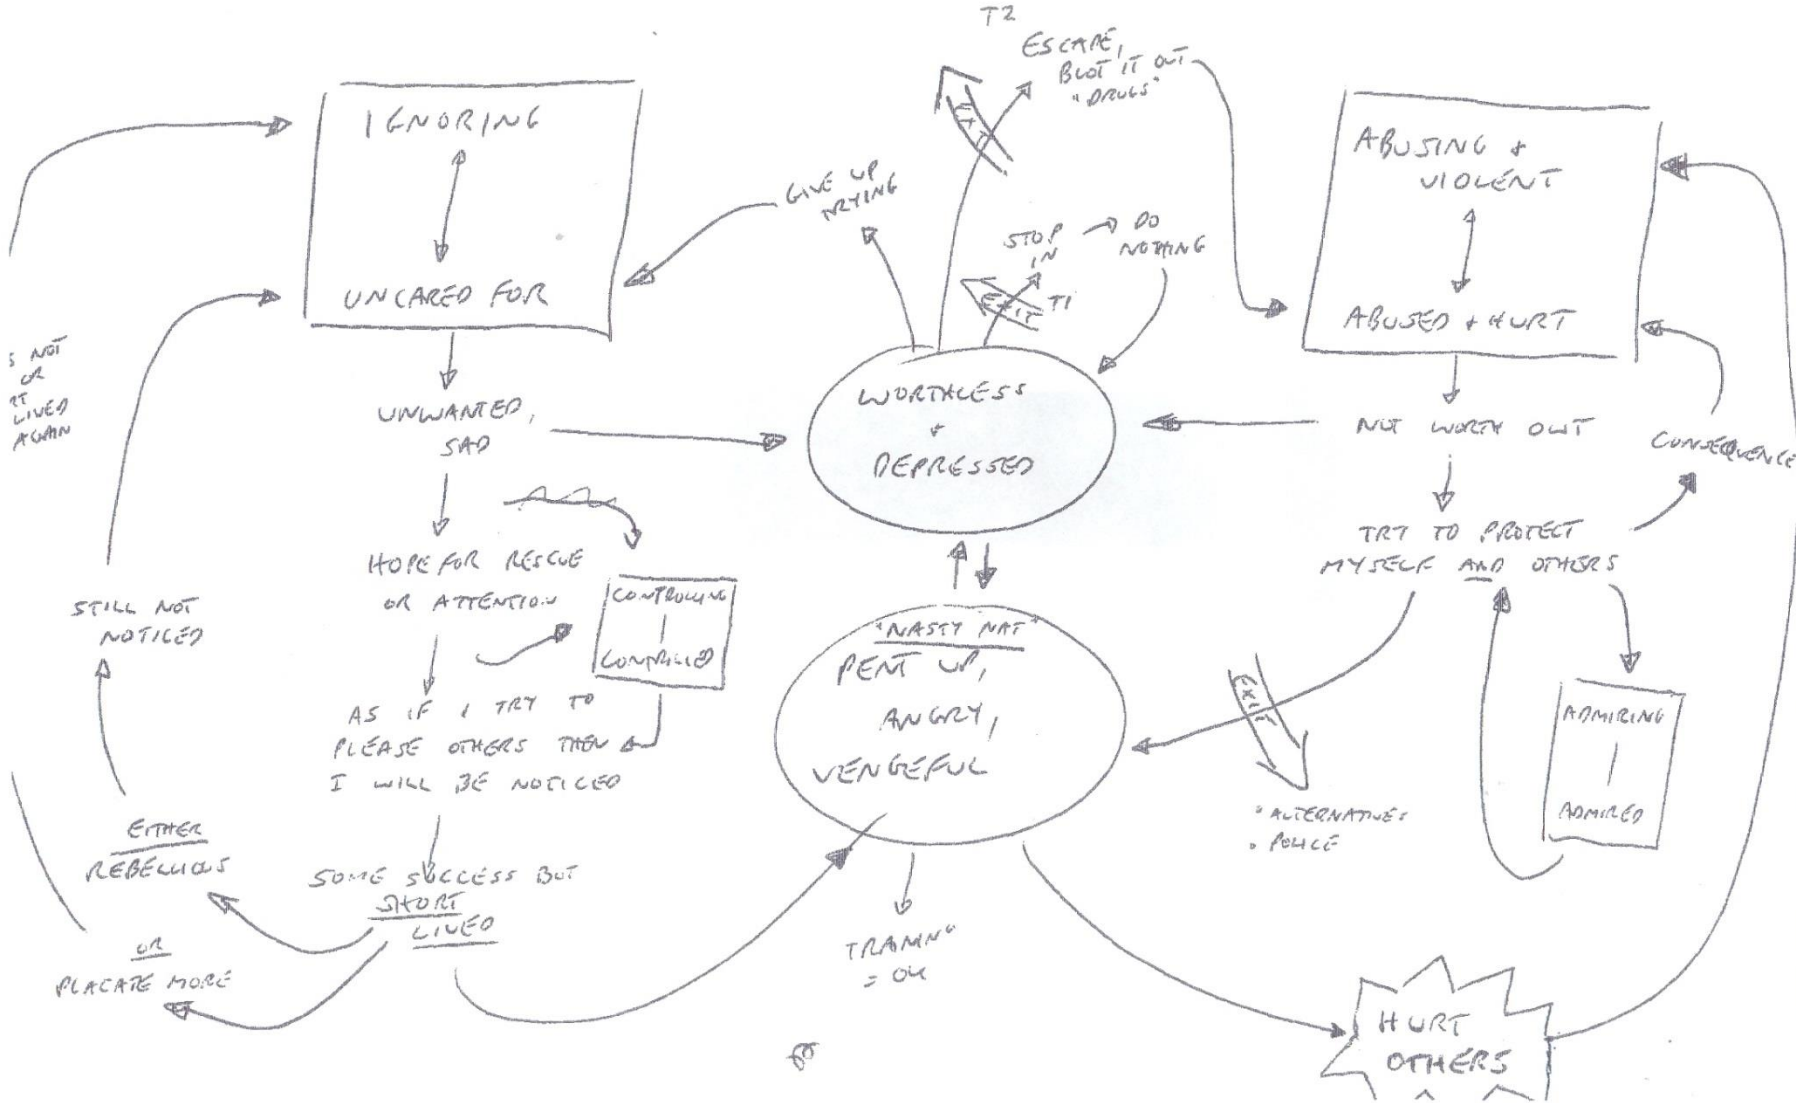 T2
ESCAPE,
BLOT IT OUT
"DRUGS"
EXIT
IGNORING
UNCARED FOR
GIVE UP
TRYING
STOP
IN
DO
NOTHING
EXIT
T1
ABUSING +
VIOLENT
ABUSED + HURT
S NOT
OR
RT
LIVED
AGAIN
UNWANTED,
SAD
WORTHLESS
+
DEPRESSED
NOT WORTH OWT
CONSEQUENCE
HOPE FOR RESCUE
OR ATTENTION
CONTROLLING
CONTROLLED
TRY TO PROTECT
MYSELF AND OTHERS
STILL NOT
NOTICED
"NASTY NAT"
PENT UP,
ANGRY,
VENGEFUL
EXIT
ADMIRING
ADMIRED
AS IF I TRY TO
PLEASE OTHERS THEN
I WILL BE NOTICED
• ALTERNATIVES
• POLICE
EITHER
REBELLIOUS
SOME SUCCESS BUT
SHORT
LIVED
OR
PLACATE MORE
= OK
HURT
OTHERS